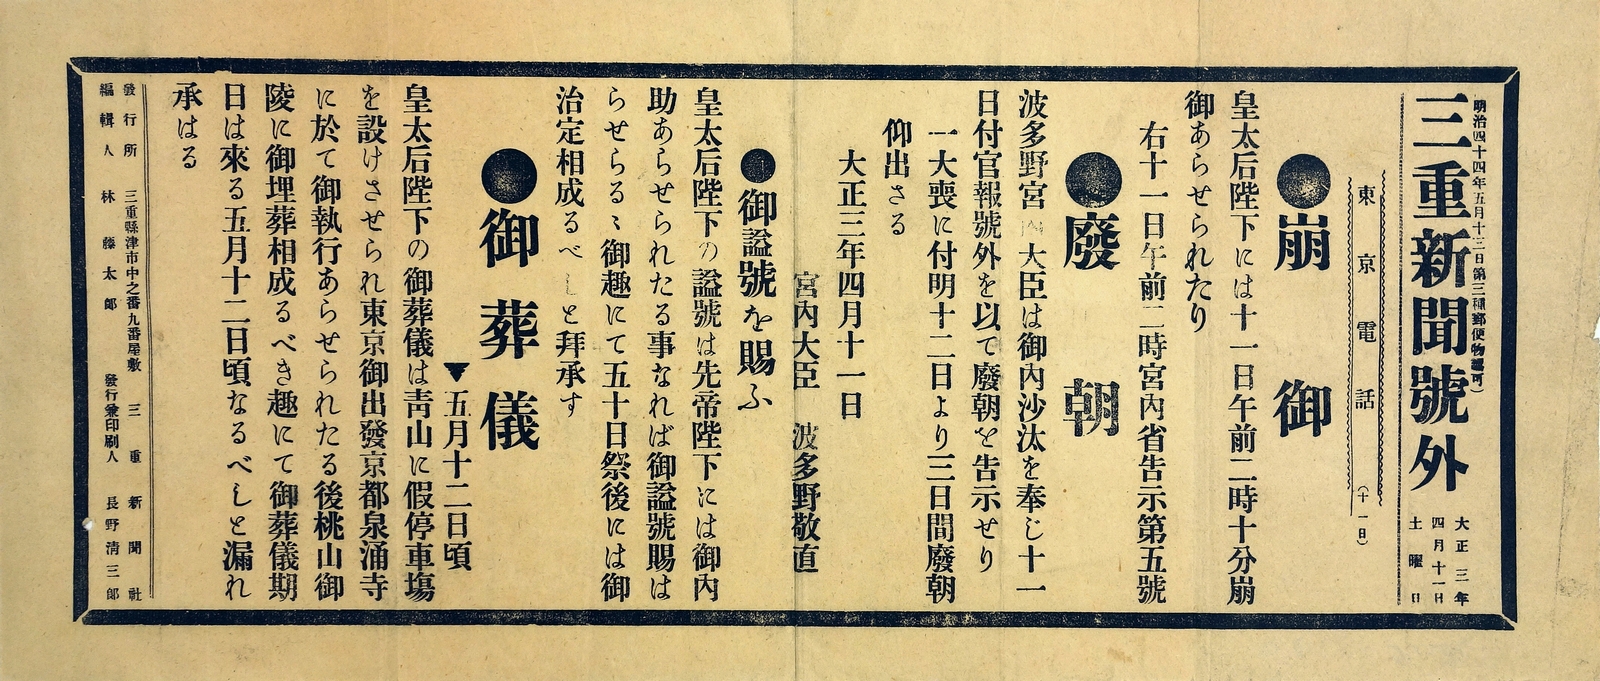 明治四十四年五月十三日第三種郵便物認可)
三重新聞號外
大正三年
四月十一日
土曜日
東京電話(十一日)
●崩御
皇太后陛下には十一日午前二時十分崩
御あらせられたり
右十一日午前二時宮内省告示第五號
●廢朝
波多野宮内大臣は御内沙汰を奉じ十一
日付官報號外を以て廢朝を告示せり
一大喪に付明十二日より三日間廢朝
仰出さる
大正三年四月十一日
宮内大臣 波多野敬直
●御諡號を賜ふ
皇太后陛下の諡號は先帝陛下には御内
助あらせられたる事なれば御諡號賜は
らせらるゝ御趣にて五十日祭後には御
治定相成るべしと拜承す
●御葬儀
▼五月十二日頃
皇太后陛下の御葬儀は靑山に假停車塲
を設けさせられ東京御出發京都泉涌寺
に於て御執行あらせられたる後桃山御
陵に御埋葬相成るべき趣にて御葬儀期
日は來る五月十二日頃なるべしと漏れ
承はる
發行所 三重縣津市中之番九番屋敷 三重新聞社
編輯人 林藤太郎 發行兼印刷人 長野淸三郎